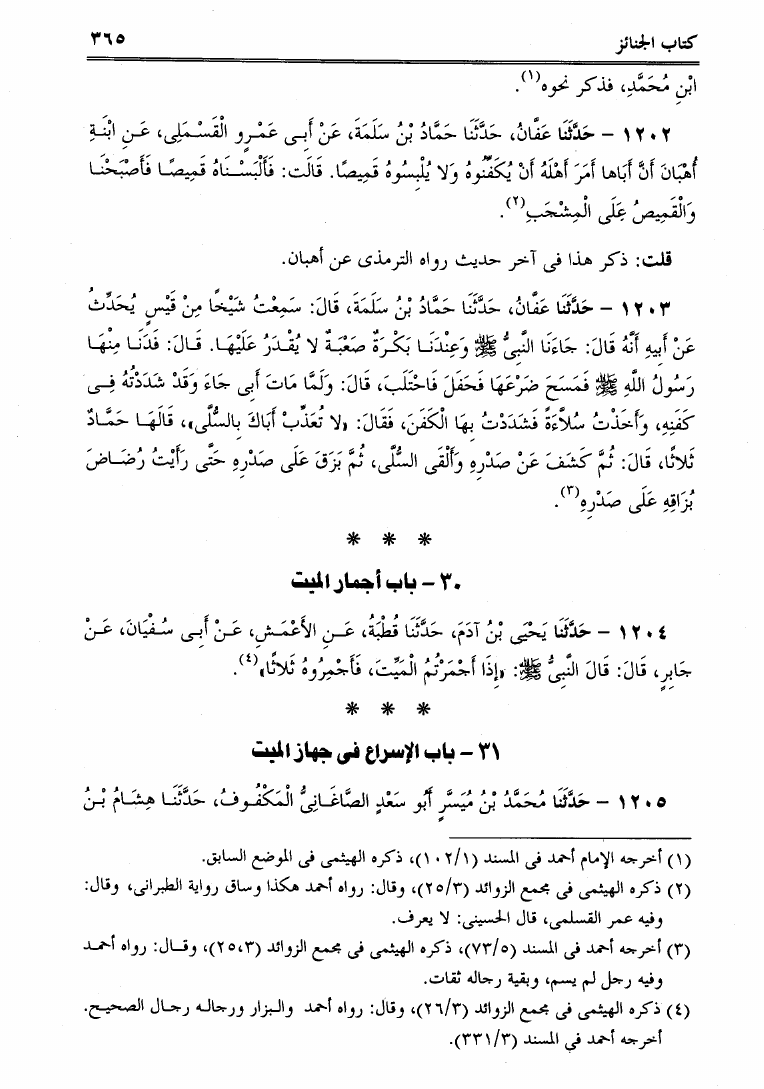 كتاب الجنائز ٣٦٥
ابْنِ مُحَمَّدٍ، فذكر نحوه(١).
١٢٠٢ – حَدَّثَنَا عَفَّانُ، حَدَّثَنَا حَمَّادُ بْنُ سَلَمَةَ، عَنْ أَبِى عَمْرٍو الْقَسْمَلِى، عَنِ ابْنَةِ
أُهْبَانَ أَنَّ أَبَاها أَمَرَ أَهْلَهُ أَنْ يُكَفِّنُوهُ وَلا يُلْبِسُوهُ قَمِيصًا. قَالَت: فَأَلْبَسْنَاهُ قَمِيصًا فَأَصْبَحْنَا
وَالْقَمِيصُ عَلَى الْمِشْجَبِ(٢).
قلت: ذكر هذا فى آخر حديث رواه الترمذى عن أهبان.
١٢٠٣ – حَدَّثَنَا عَفَّانُ، حَدَّثَنَا حَمَّادُ بْنُ سَلَمَةَ، قَالَ: سَمِعْتُ شَيْخًا مِنْ قَيْسٍ يُحَدِّثُ
عَنْ أَبِيهِ أَنَّهُ قَالَ: جَاءَنَا النَّبِىُّ ﷺ وَعِنْدَنَا بَكْرَةٌ صَعْبَةٌ لا يُقْدَرُ عَلَيْهَا. قَالَ: فَدَنَا مِنْهَا
رَسُولُ اللَّهِ ﷺ فَمَسَحَ ضَرْعَهَا فَحَفَلَ فَاحْتَلَبَ، قَالَ: وَلَمَّا مَاتَ أَبِى جَاءَ وَقَدْ شَدَدْتُهُ فِى
كَفَنِهِ، وَأَخَذْتُ سُلاَّءَةً فَشَدَدْتُ بِهَا الْكَفَنَ، فَقَالَ: «لا تُعَذِّبْ أَبَاكَ بِالسُّلَّى»، قَالَهَا حَمَّادٌ
ثَلاثًا، قَالَ: ثُمَّ كَشَفَ عَنْ صَدْرِهِ وَأَلْقَى السُّلَّى، ثُمَّ بَزَقَ عَلَى صَدْرِهِ حَتَّى رَأَيْتُ رُضَاضَ
بُزَاقِهِ عَلَى صَدْرِهِ(٣).
* * *
٣٠ – باب أجمار الميت
١٢٠٤ – حَدَّثَنَا يَحْيَى بْنُ آدَمَ، حَدَّثَنَا قُطْبَةُ، عَنِ الأَعْمَشِ، عَنْ أَبِى سُفْيَانَ، عَنْ
جَابِرٍ، قَالَ: قَالَ النَّبِىُّ ﷺ: «إِذَا أَجْمَرْتُمُ الْمَيِّتَ، فَأَجْمِرُوهُ ثَلاثًا»(٤).
* * *
٣١ – باب الإسراع فى جهاز الميت
١٢٠٥ – حَدَّثَنَا مُحَمَّدُ بْنُ مُيَسَّرٍ أَبُو سَعْدٍ الصَّاغَانِىُّ الْمَكْفُوفُ، حَدَّثَنَا هِشَامُ بْنُ
(١) أخرجه الإمام أحمد فى المسند (١٠٢/١)، ذكره الهيثمى فى الموضع السابق.
(٢) ذكره الهيثمى فى مجمع الزوائد (٢٥/٣)، وقال: رواه أحمد هكذا وساق رواية الطبرانى، وقال:
وفيه عمر القسلمى، قال الحسينى: لا يعرف.
(٣) أخرجه أحمد فى المسند (٧٣/٥)، ذكره الهيثمى فى مجمع الزوائد (٢٥،٣)، وقال: رواه أحمد
وفيه رجل لم يسم، وبقية رجاله ثقات.
(٤) ذكره الهيثمى فى مجمع الزوائد (٢٦/٣)، وقال: رواه أحمد والبزار ورجاله رجال الصحيح.
أخرجه أحمد فى المسند (٣٣١/٣).